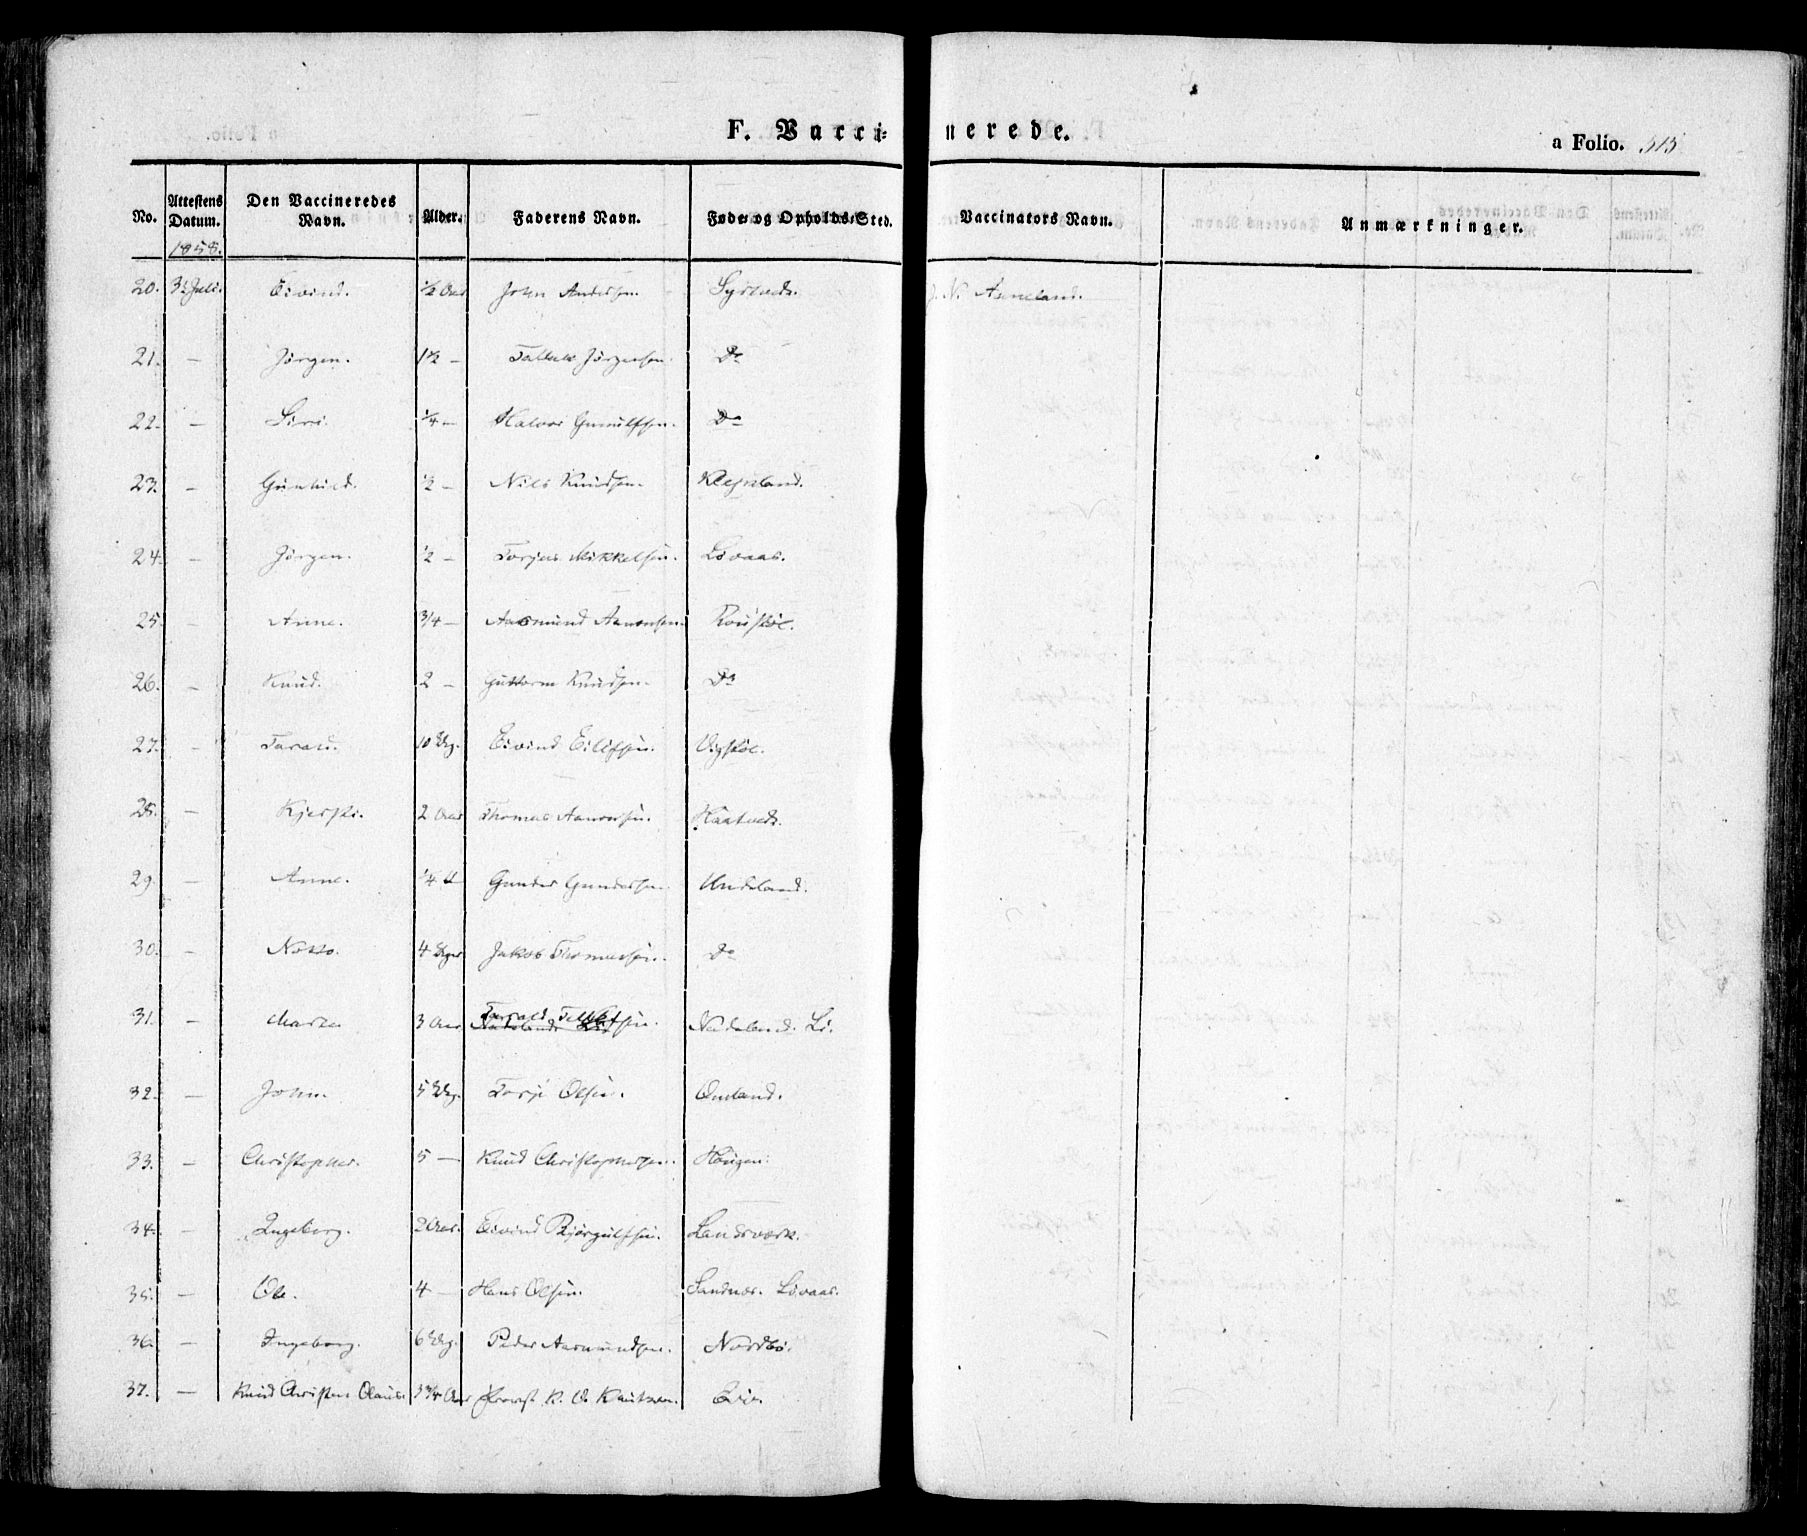 F. Vaccinerede.
a Folio. 313
No. Attestens Datum. Den Vaccineredes Navn. Alder. Faderens Navn. Føde- og Opholds-Sted. Vaccinators Navn. Anmærkninger.
1858.
20. 3 Juli. Eivind. ½ Aar John Andersen. Syrtveds. J. N. Aaneland.
21. — Jörgen. 1½ — Tallak Jörgensen. Do
22. — Siri. ¼ — Halvor Gunulfsen. Do
23. — Gunhild. ½ — Nils Knudsen.
24. — Jörgen. ½ — Torjus Mikkelsen. Lövaas.
25. — Anne. 3/4 — Aasmund Aanonsen.
26. — Knud. 2 — Guttorm Knudsen. Do
27. — Taran. 10 Eivind Eilifsen. Vigstöl.
28. — Kjersti. 2 Aar Thomas Aanonsen. Haatveds.
29. — Anne. ¼ Gunder Gundersen. Undeland.
30. — 4 Jakob Thomassen. Do
31. — Marte 3 Aar Tarald Nadeland. Lö.
32. — John. 5 Torje Olsen. Omland.
33. — Christopher. 5 — Knud Christophersen. Hougen.
34. — Ingeborg. 2 Aar. Eivind Bjørgulfsen. Landsværk.
35. — Ole. 4 — Hans Olsen. Sandnes. Lövaas.
36. — Ingeborg. 6 Peder Aasmundsen. Nordbö.
37. — Knud Christen Olaus. 3 3/4 Aar Provst K. O. Knutzen. Evje.